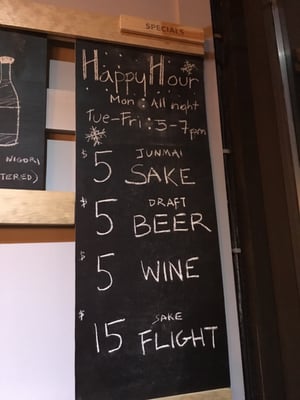 SPECIALS
Happy Hour
Mon : All night
Tue-Fri : 5-7pm
$5 JUNMAI SAKE
$5 DRAFT BEER
$5 WINE
$15 SAKE FLIGHT
NIGORI